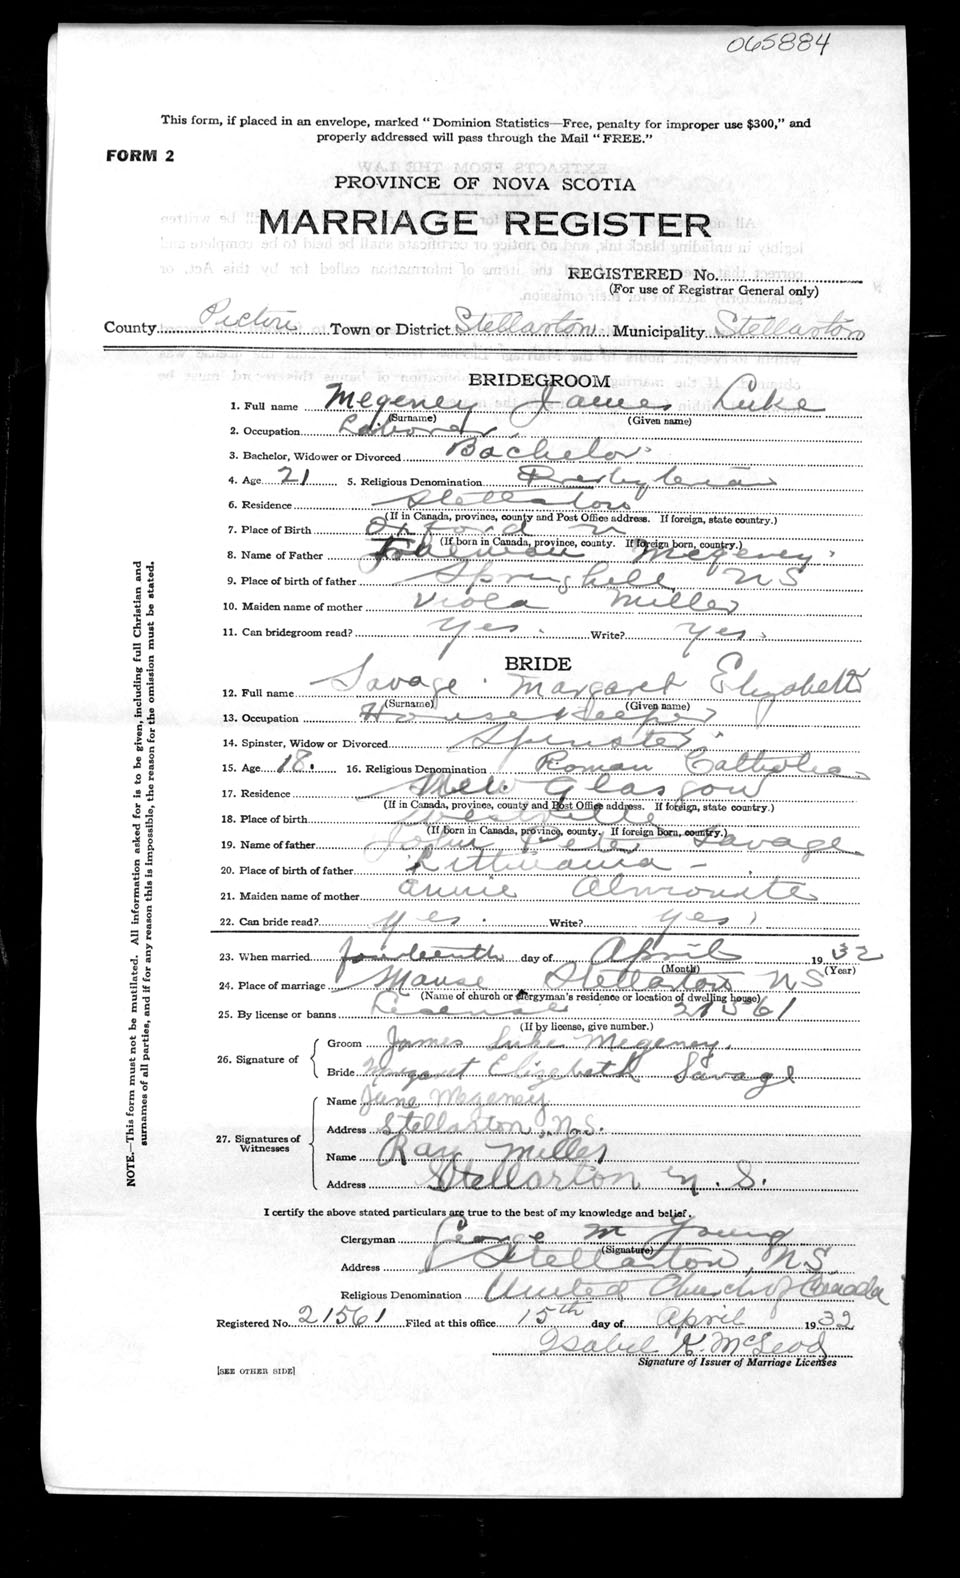 065884
This form, if placed in an envelope, marked "Dominion Statistics—Free, penalty for improper use $300," and
properly addressed will pass through the Mail "FREE."
FORM 2
PROVINCE OF NOVA SCOTIA
MARRIAGE REGISTER
REGISTERED No.
(For use of Registrar General only)
County Pictou Town or District Stellarton Municipality Stellarton
BRIDEGROOM
1. Full name Megeney James Luke
(Surname) (Given name)
2. Occupation Laborer
3. Bachelor, Widower or Divorced Bachelor
4. Age 21 5. Religious Denomination Presbyterian
6. Residence Stellarton
(If in Canada, province, county and Post Office address. If foreign, state country.)
7. Place of Birth Oxford
(If born in Canada, province, county. If foreign born, country.)
8. Name of Father Megeney
9. Place of birth of father Springhill NS
10. Maiden name of mother Viola Miller
11. Can bridegroom read? Yes. Write? Yes.
BRIDE
12. Full name Savage Margaret Elizabeth
(Surname) (Given name)
13. Occupation Housekeeper
14. Spinster, Widow or Divorced Spinster
15. Age 18. 16. Religious Denomination Roman Catholic
17. Residence New Glasgow
(If in Canada, province, county and Post Office address. If foreign, state country.)
18. Place of birth Westville
(If born in Canada, province, county. If foreign born, country.)
19. Name of father John Peter Savage
20. Place of birth of father Lithuania
21. Maiden name of mother Annie
22. Can bride read? Yes. Write? Yes.
23. When married fourteenth day of April 1932
(Month) (Year)
24. Place of marriage Manse Stellarton NS
(Name of church or clergyman's residence or location of dwelling house)
25. By license or banns 21561
(If by license, give number.)
26. Signature of
Groom James Luke Megeney.
Bride Margaret Elizabeth Savage
27. Signatures of Witnesses
Name June Megeney
Address Stellarton, N.S.
Name Ray Miller
Address Stellarton N.S.
I certify the above stated particulars are true to the best of my knowledge and belief.
Clergyman George M Young
(Signature)
Address Stellarton, NS
Religious Denomination United Church of Canada
Registered No. 21561 Filed at this office 15th day of April 1932
Isabel K. McLeod
Signature of Issuer of Marriage Licenses
[SEE OTHER SIDE]
NOTE.—This form must not be mutilated. All information asked for is to be given, including full Christian and
surnames of all parties, and if for any reason this is impossible, the reason for the omission must be stated.